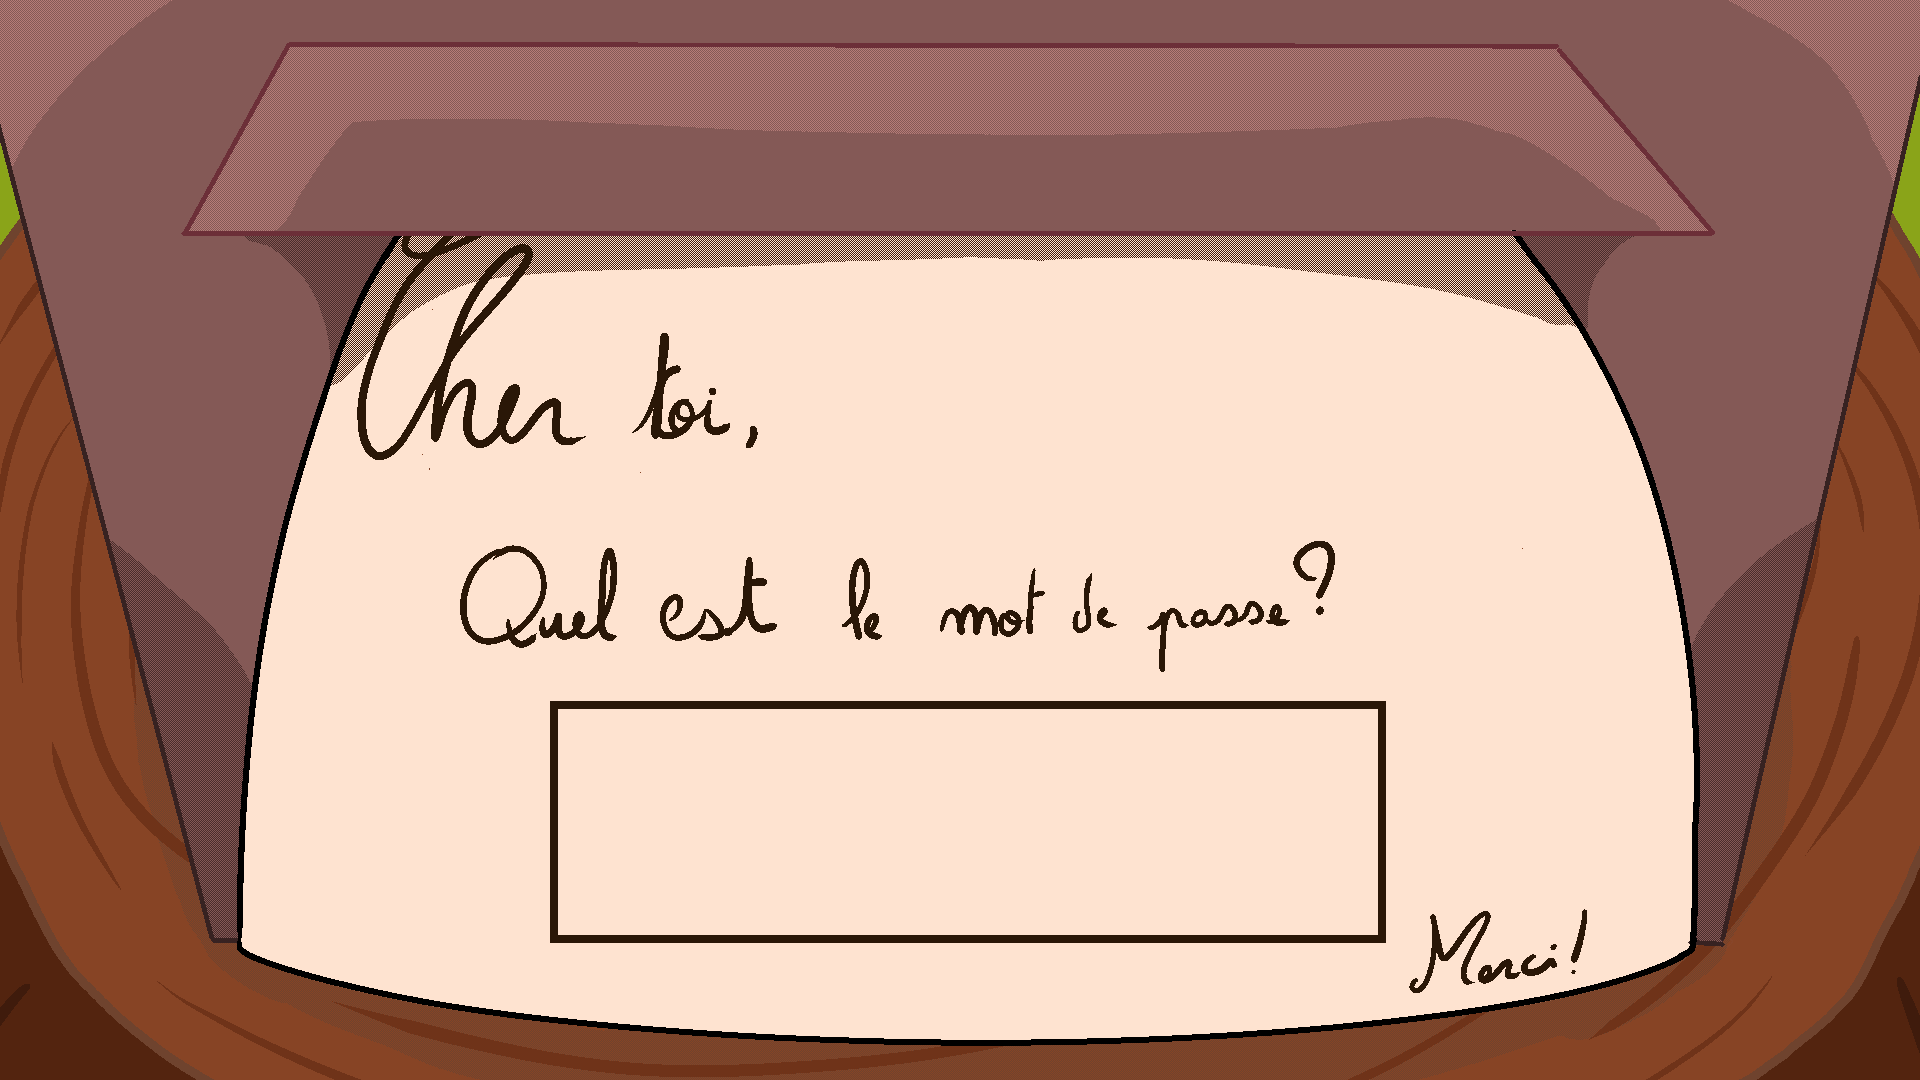 Cher toi,
Quel est le mot de passe?
Merci!